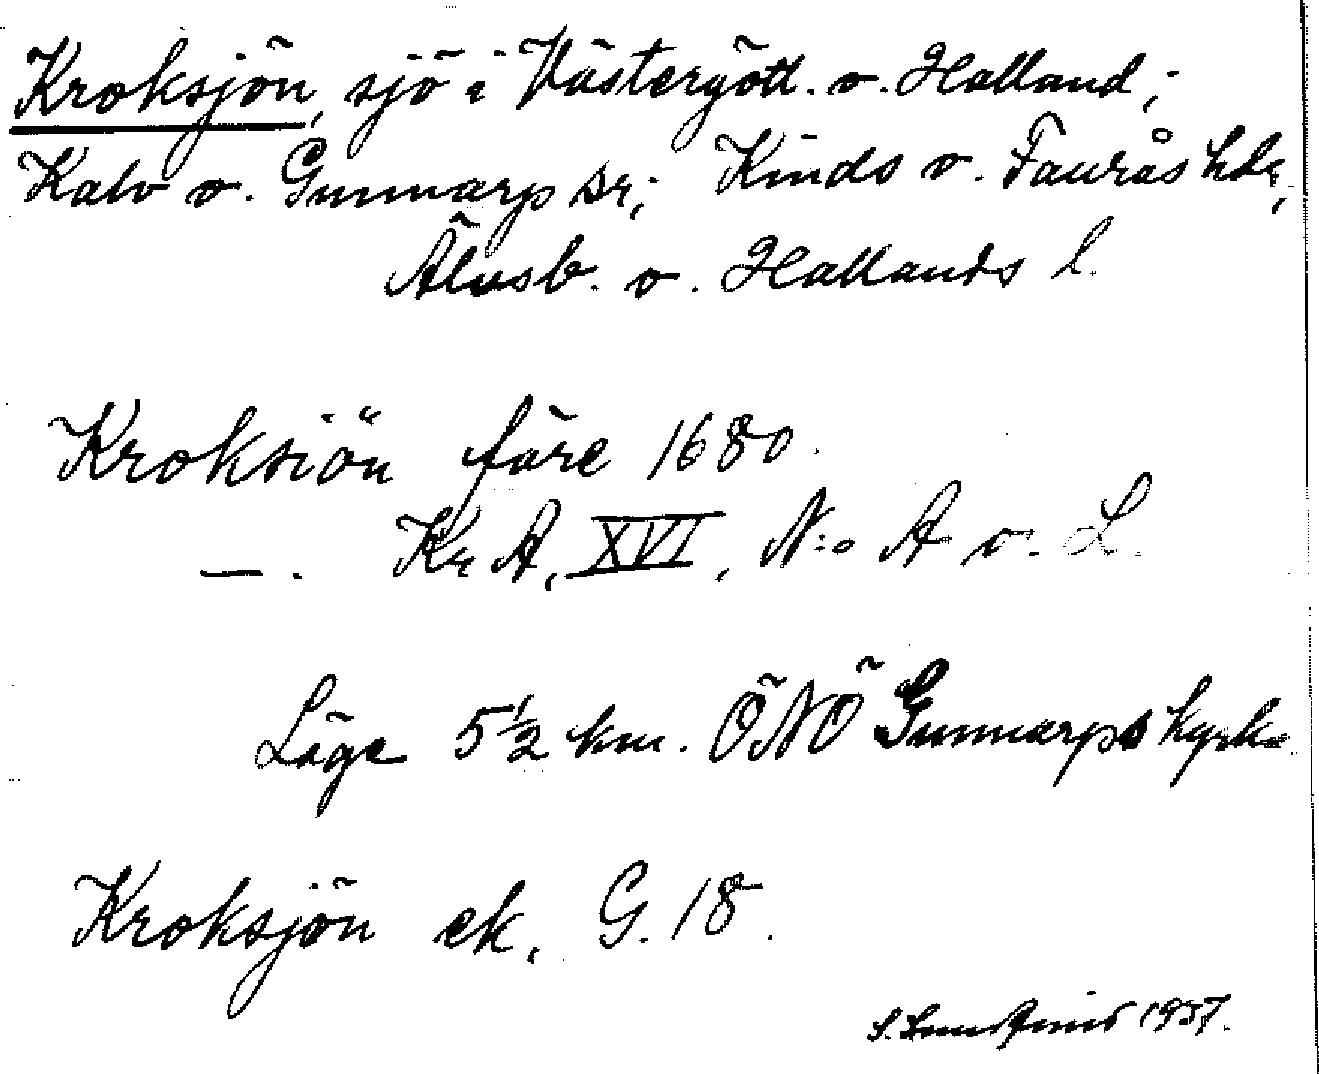 Kroksjön, sjö i Västergötl. o. Halland;
Kalv o. Gunnarp sr; Kinds o. Faurås hdr,
Älvsb. o. Hallands l.
Kroksiön före 1680.
—. KrA, XVI, N:o A o. L.
Läge 5½ km. ÖNÖ Gunnarps kyrka
Kroksjön ek. G. 18.
1937.